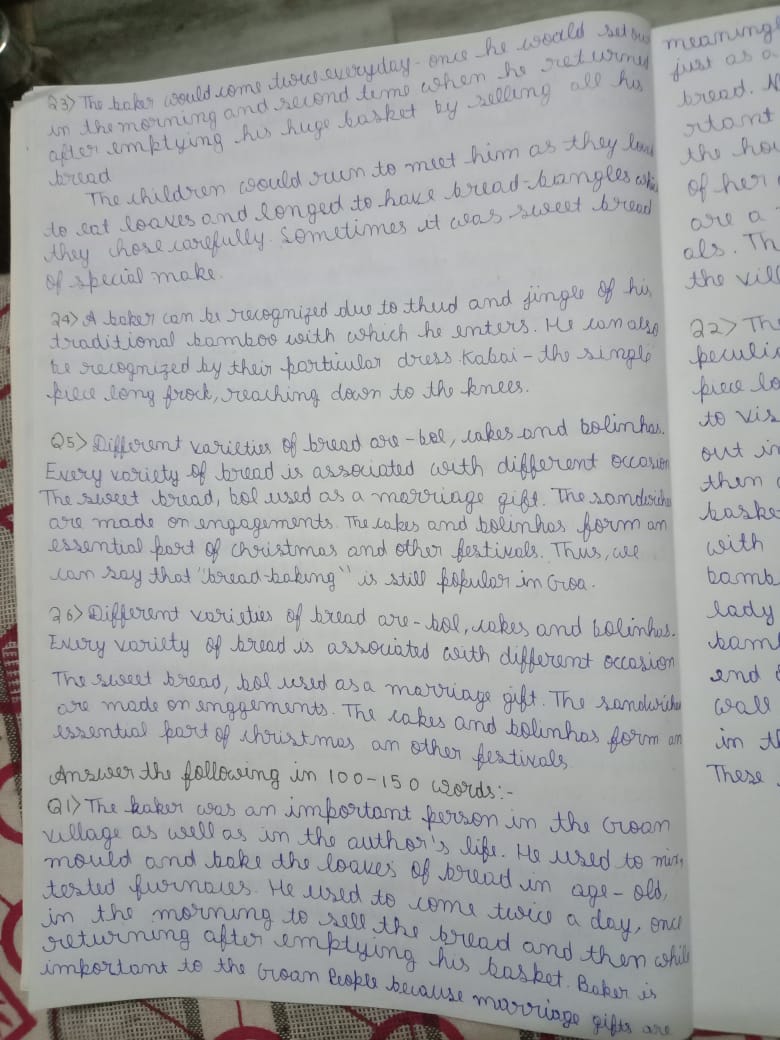 Q3> The baker would come twice everyday - once he would set out
in the morning and second time when he returned
after emptying his huge basket by selling all his
bread
The children would run to meet him as they
to eat loaves and longed to have bread-bangles
they chose carefully. Sometimes it was sweet bread
of special make.
Q4> A baker can be recognized due to thud and jingle of his
traditional bamboo with which he enters. He can also
be recognized by their particular dress Kabai - the single
piece long frock, reaching down to the knees.
Q5> Different varieties of bread are - bol, cakes and bolinhas.
Every variety of bread is associated with different occasion
The sweet bread, bol used as a marriage gift. The sandwiche
are made on engagements. The cakes and bolinhas form an
essential part of christmas and other festivals. Thus, we
can say that "bread-baking" is still popular in Goa.
Q6> Different varieties of bread are - bol, cakes and bolinhas.
Every variety of bread is associated with different occasion
The sweet bread, bol used as a marriage gift. The sandwiche
are made on enggements. The cakes and bolinhas form an
essential part of christmas an other festivals
Answer the following in 100-150 words:-
Q1> The baker was an important person in the Goan
village as well as in the author's life. He used to mix,
mould and bake the loaves of bread in age-old,
tested furnaces. He used to come twice a day, once
in the morning to sell the bread and then while
returning after emptying his basket. Baker is
important to the Goan People because marriage gifts are
meaningl
just as a
bread.
rtant
the hou
of her
are a
als. Th
the vill
Q2> Th
peculia
piece lo
to vis
out in
then
baske
with
bamb
lady
bam
and
wall
in th
These